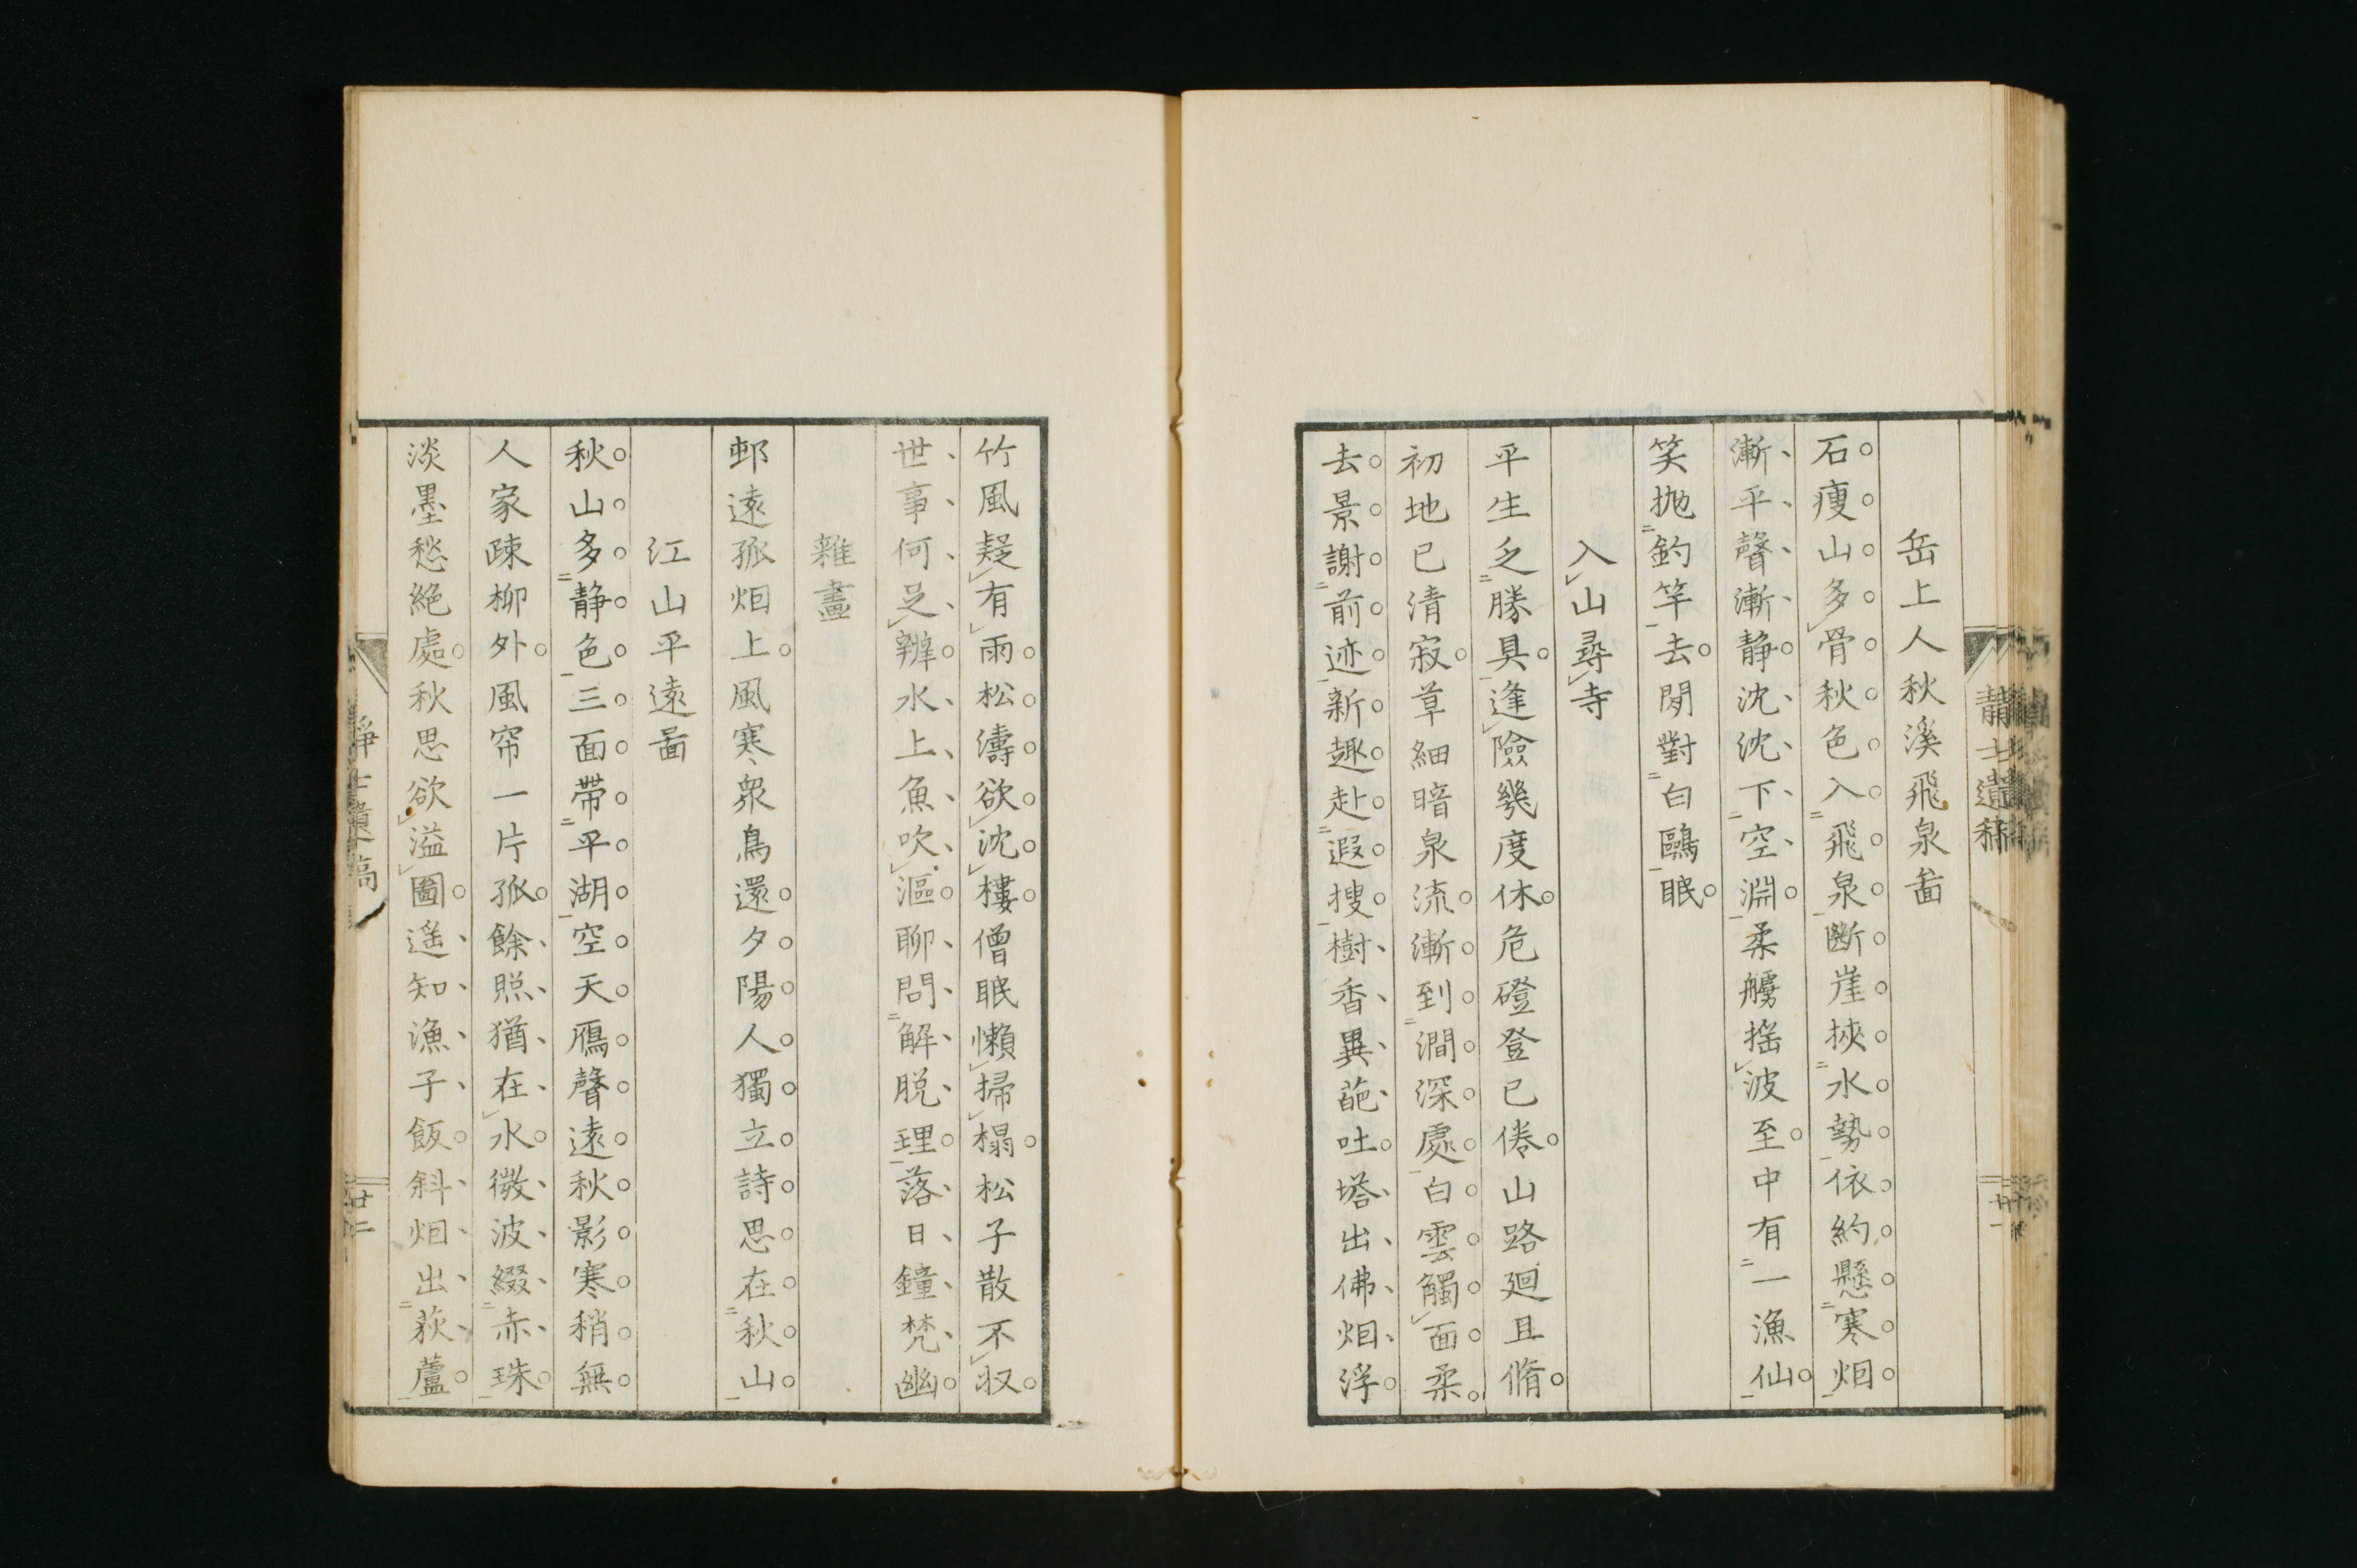 岳上人秋溪飛泉啚
石瘦山多骨秋色入飛泉斷崖挾水勢依約懸寒烟
漸平聲漸静沈沈下空淵柔艣搖波至中有一漁仙
笑抛釣竿去閒對白鷗眠
入山尋寺
平生乏勝具逢險幾度休危磴登已倦山路廻且脩
初地已清寂草細暗泉流漸到澗深處白雲觸面柔
去景謝前迹新趣赴遐搜樹香異葩吐塔出佛烟浮
竹風疑有雨松濤欲沈樓僧眠懶掃榻松子散不収
世事何足辨水上魚吹漚聊問解脱理落日鐘梵幽
雜畫
邨遠孤烟上風寒衆鳥還夕陽人獨立詩思在秋山
江山平遠啚
秋山多静色三面帶平湖空天鴈聲遠秋影寒稍無
人家疎柳外風帘一片孤餘照猶在水微波綴赤珠
淡墨愁絶處秋思欲溢圖遥知漁子飯斜烟出荻蘆
靜士遺稿
廿一
靜士遺稿
廿二